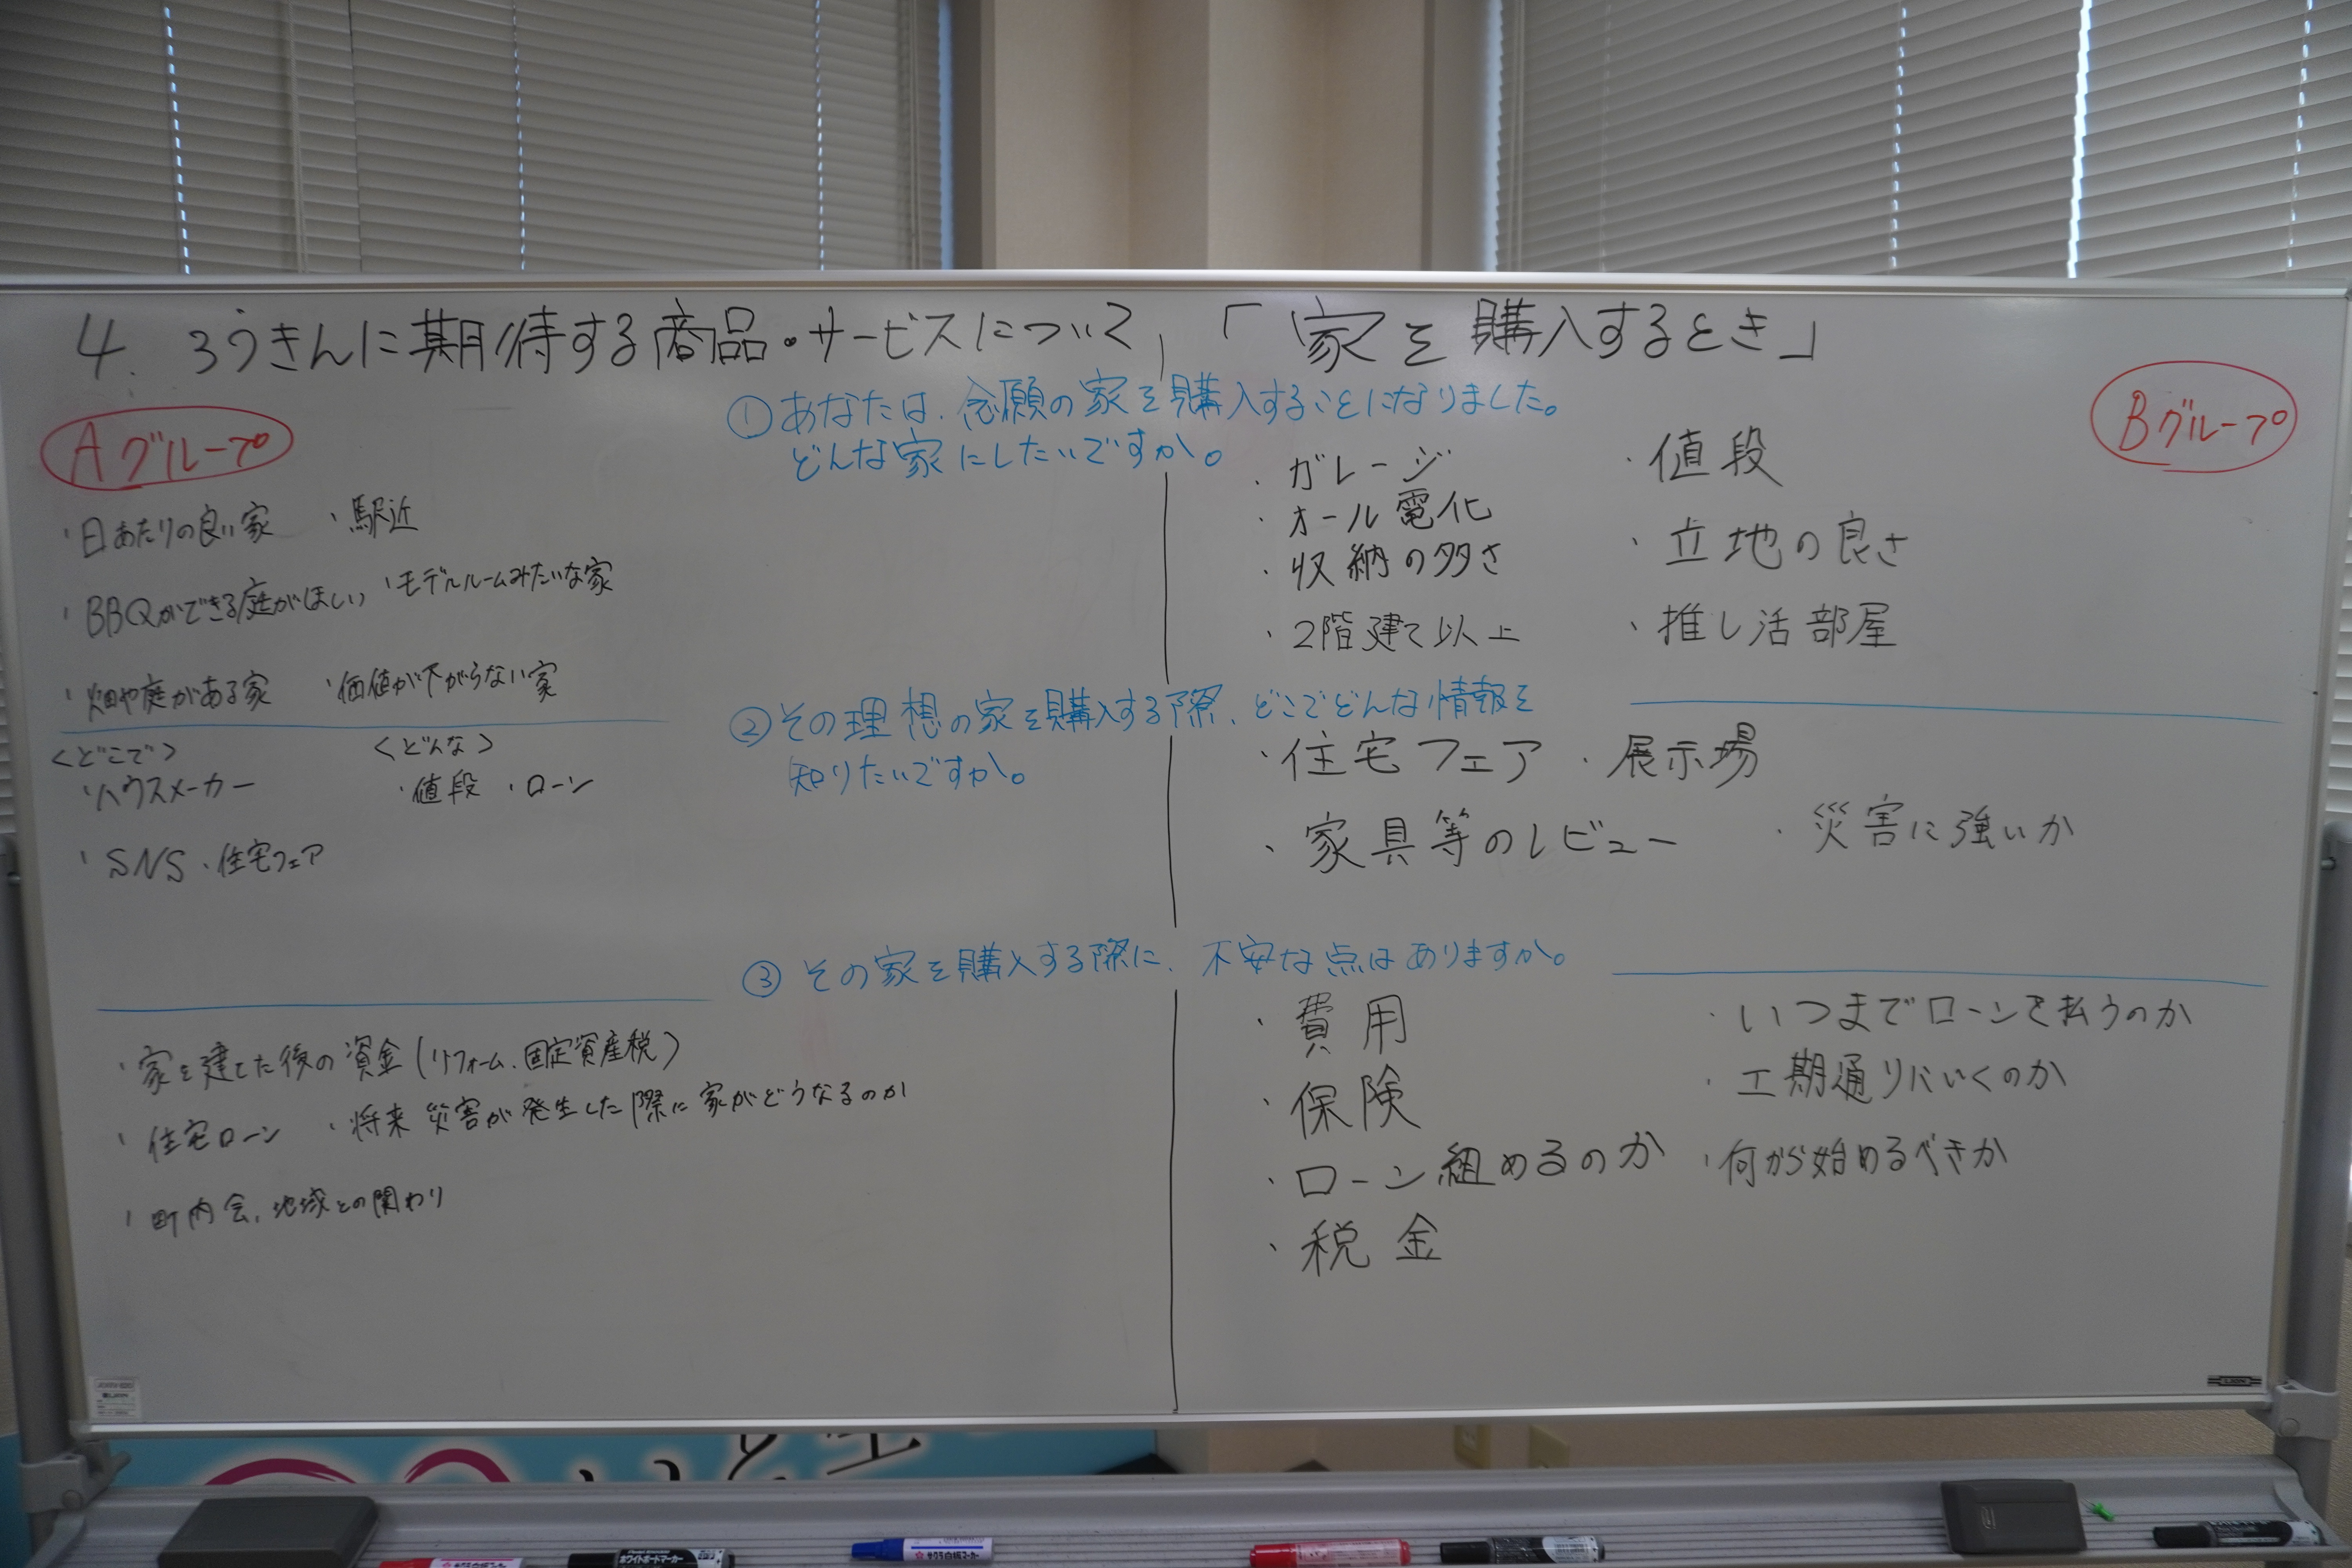 4. ろうきんに期待する商品・サービスについて、「家を購入するとき」
Aグループ
Bグループ
①あなたは、念願の家を購入することになりました。
どんな家にしたいですか。
・日あたりの良い家 ・駅近
・BBQができる庭がほしい ・モデルルームみたいな家
・畑や庭がある家 ・価値が下がらない家
・ガレージ ・値段
・オール電化
・収納の多さ ・立地の良さ
・2階建て以上 ・推し活部屋
②その理想の家を購入する際、どこでどんな情報を
知りたいですか。
<どこで> <どんな>
・ハウスメーカー ・値段 ・ローン
・SNS ・住宅フェア
・住宅フェア ・展示場
・家具等のレビュー ・災害に強いか
③その家を購入する際に、不安な点はありますか。
・家を建てた後の資金(リフォーム、固定資産税)
・住宅ローン ・将来災害が発生した際に家がどうなるのか
・町内会、地域との関わり
・費用 ・いつまでローンを払うのか
・保険 ・工期通りにいくのか
・ローン組めるのか ・何から始めるべきか
・税金
サクラ白板マーカー
ホワイトボードマーカー
サクラ白板マーカー